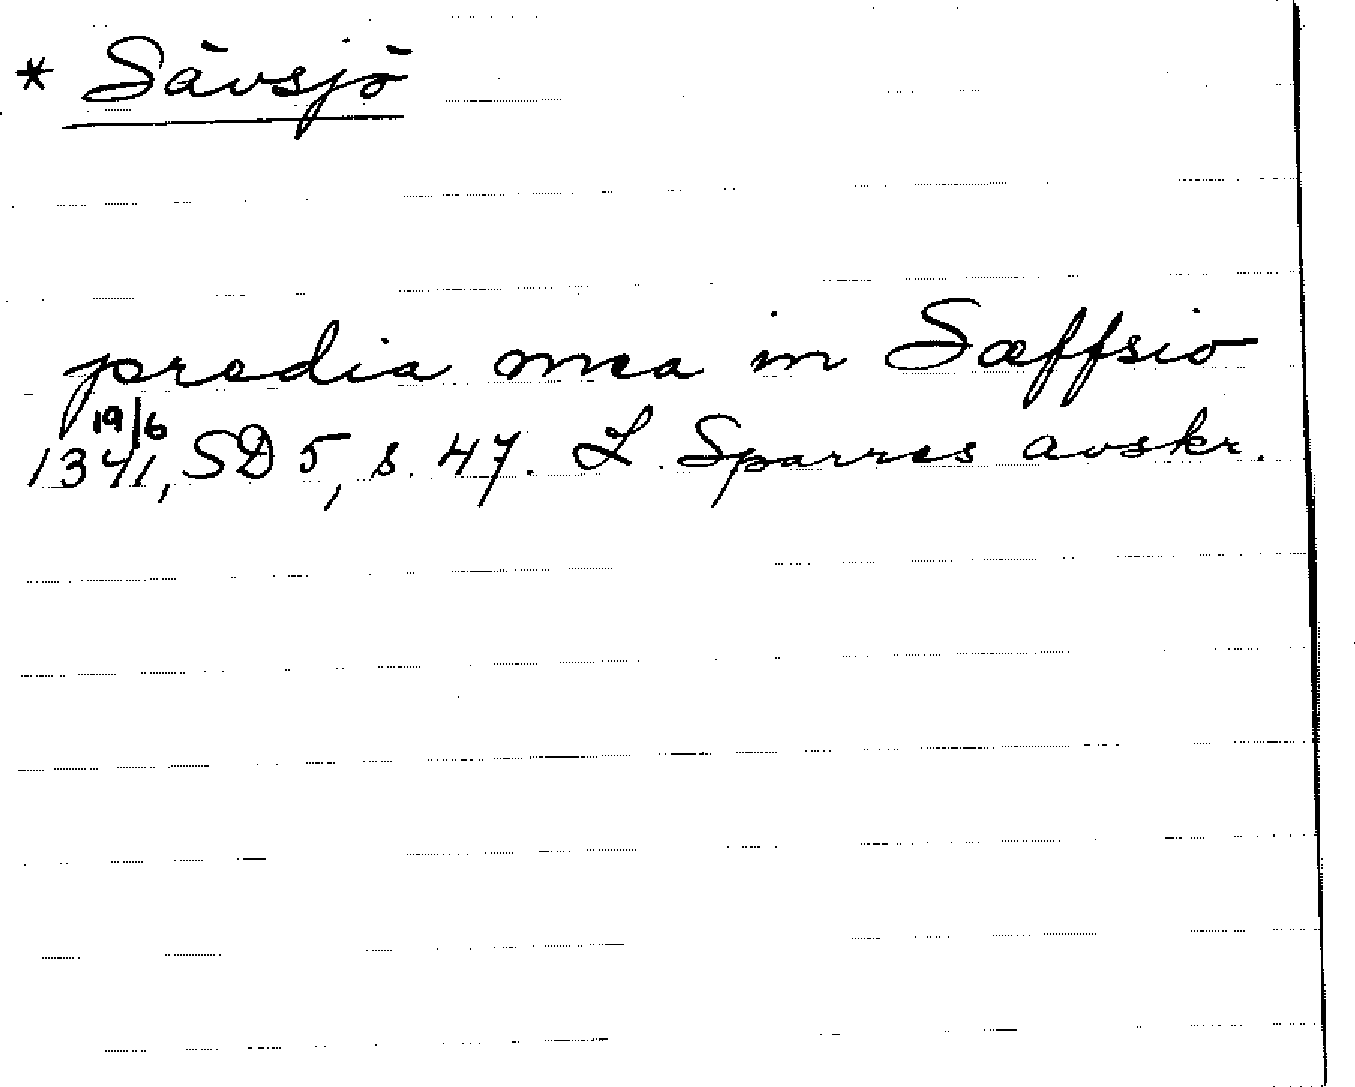 * Sävsjö
predia mea in Sæffsio
19/6
1341, SD 5, s. 47. L. Sparres avskr.